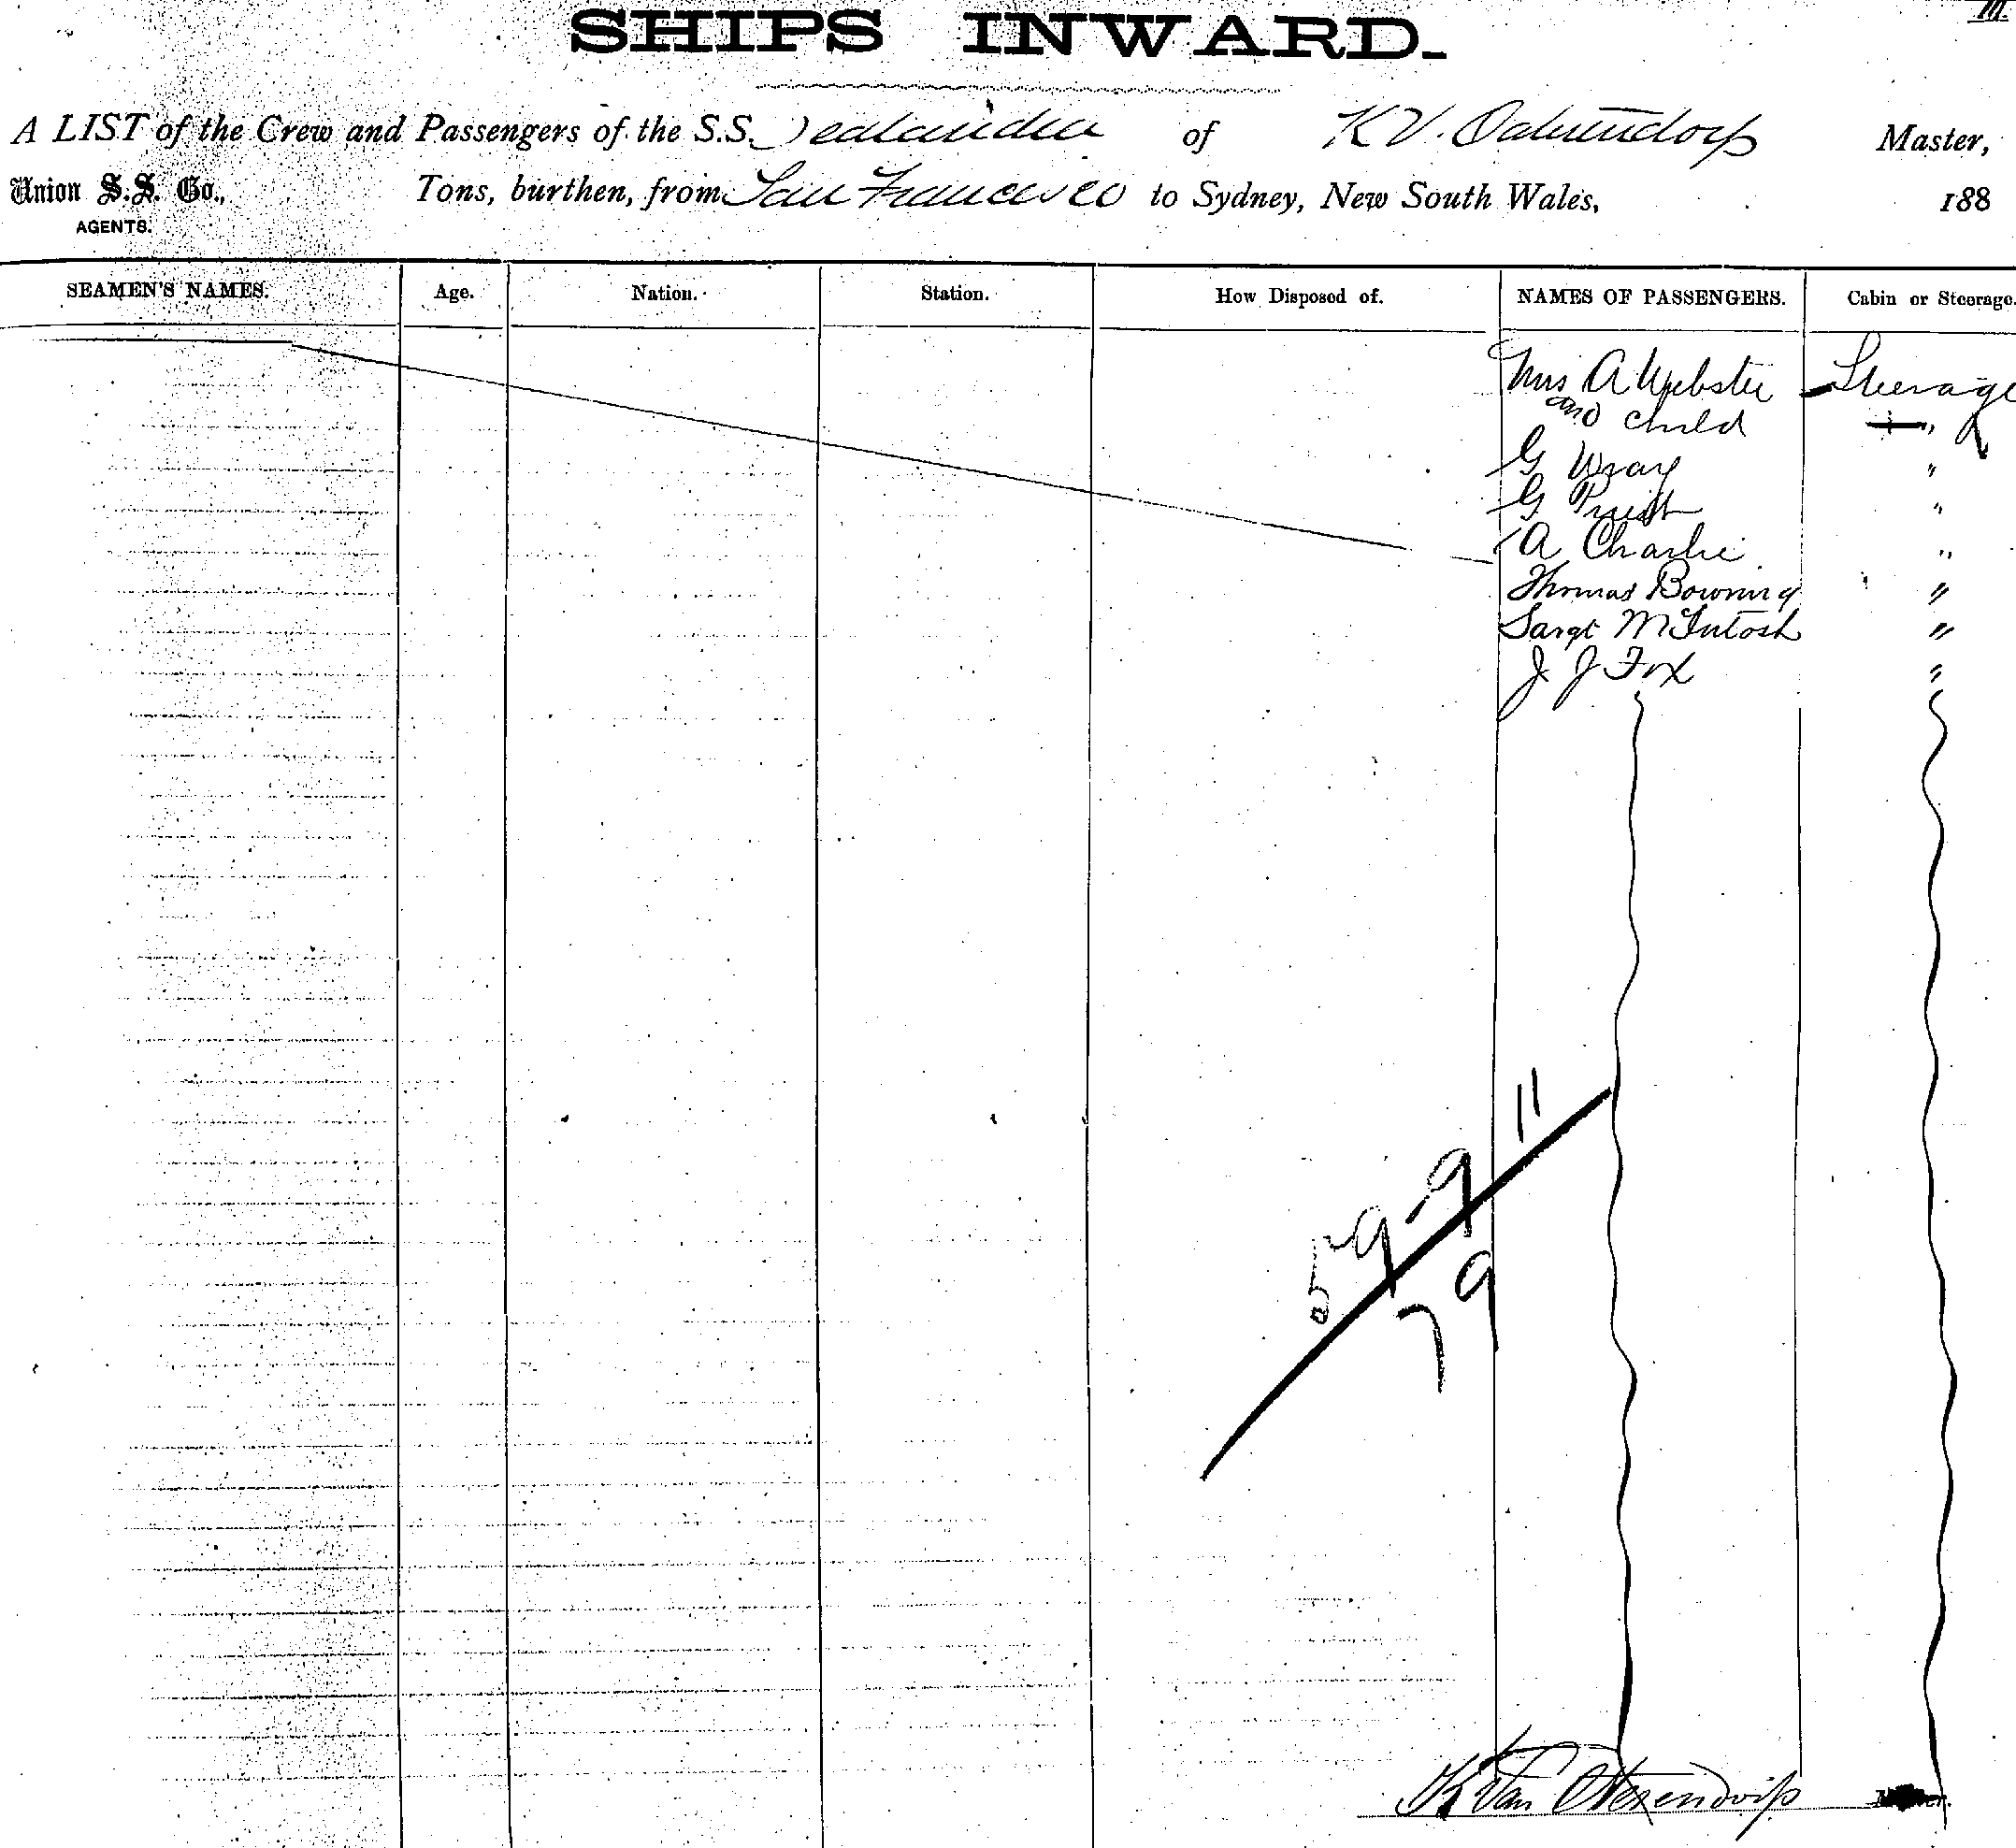 SHIPS INWARD.
A LIST of the Crew and Passengers of the S.S. Zealandia of K V. Master,
Union S.S. Co., Tons, burthen, from San Francisco to Sydney, New South Wales, 188
AGENTS.
SEAMEN'S NAMES. Age. Nation. Station. How Disposed of. NAMES OF PASSENGERS. Cabin or Steerage.
Mrs A Webster Steerage
and child "
G Wray "
G Priest "
A Charlie "
Thomas Bowring "
Sargt McIntosh "
J J Fox "
11
9
59
79
K Van